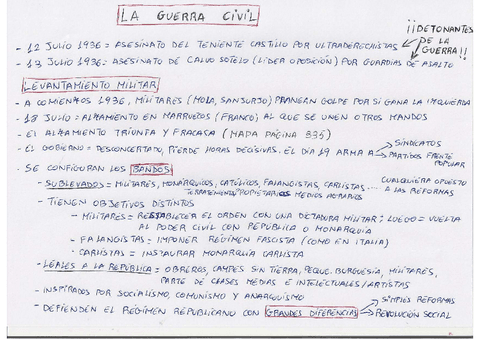 LA GUERRA CIVIL
¡¡DETONANTES DE LA GUERRA!!
- 12 JULIO 1936 = ASESINATO DEL TENIENTE CASTILLO POR ULTRADERECHISTAS
- 13 JULIO 1936 = ASESINATO DE CALVO SOTELO (LÍDER OPOSICIÓN) POR GUARDIAS DE ASALTO
LEVANTAMIENTO MILITAR
- A COMIENZOS 1936, MILITARES (MOLA, SANJURJO) PLANEAN GOLPE POR SI GANA LA IZQUIERDA
- 18 JULIO = ALZAMIENTO EN MARRUECOS (FRANCO) AL QUE SE UNEN OTROS MANDOS
- EL ALZAMIENTO TRIUNFA Y FRACASA (MAPA PÁGINA 335)
- EL GOBIERNO = DESCONCERTADO, PIERDE HORAS DECISIVAS. EL DÍA 19 ARMA A
SINDICATOS
PARTIDOS FRENTE POPULAR
- SE CONFIGURAN LOS BANDOS:
- SUBLEVADOS = MILITARES, MONÁRQUICOS, CATÓLICOS, FALANGISTAS, CARLISTAS.... CUALQUIERA OPUESTO A LAS REFORMAS
TERRATENIENTES PROPIETARIOS MEDIOS AGRARIOS
- TIENEN OBJETIVOS DISTINTOS
- MILITARES = RESTABLECER EL ORDEN CON UNA DICTADURA MILITAR; LUEGO = VUELTA
AL PODER CIVIL CON REPÚBLICA O MONARQUÍA
- FALANGISTAS = IMPONER RÉGIMEN FASCISTA (COMO EN ITALIA)
- CARLISTAS = INSTAURAR MONARQUÍA CARLISTA
- LEALES A LA REPÚBLICA = OBREROS, CAMPES SIN TIERRA, PEQUE. BURGUESÍA, MILITARES,
PARTE DE CLASES MEDIAS E INTELECTUALES/ARTISTAS
- INSPIRADOS POR SOCIALISMO, COMUNISMO Y ANARQUISMO
- DEFIENDEN EL RÉGIMEN REPUBLICANO CON GRANDES DIFERENCIAS
SIMPLES REFORMAS
REVOLUCIÓN SOCIAL